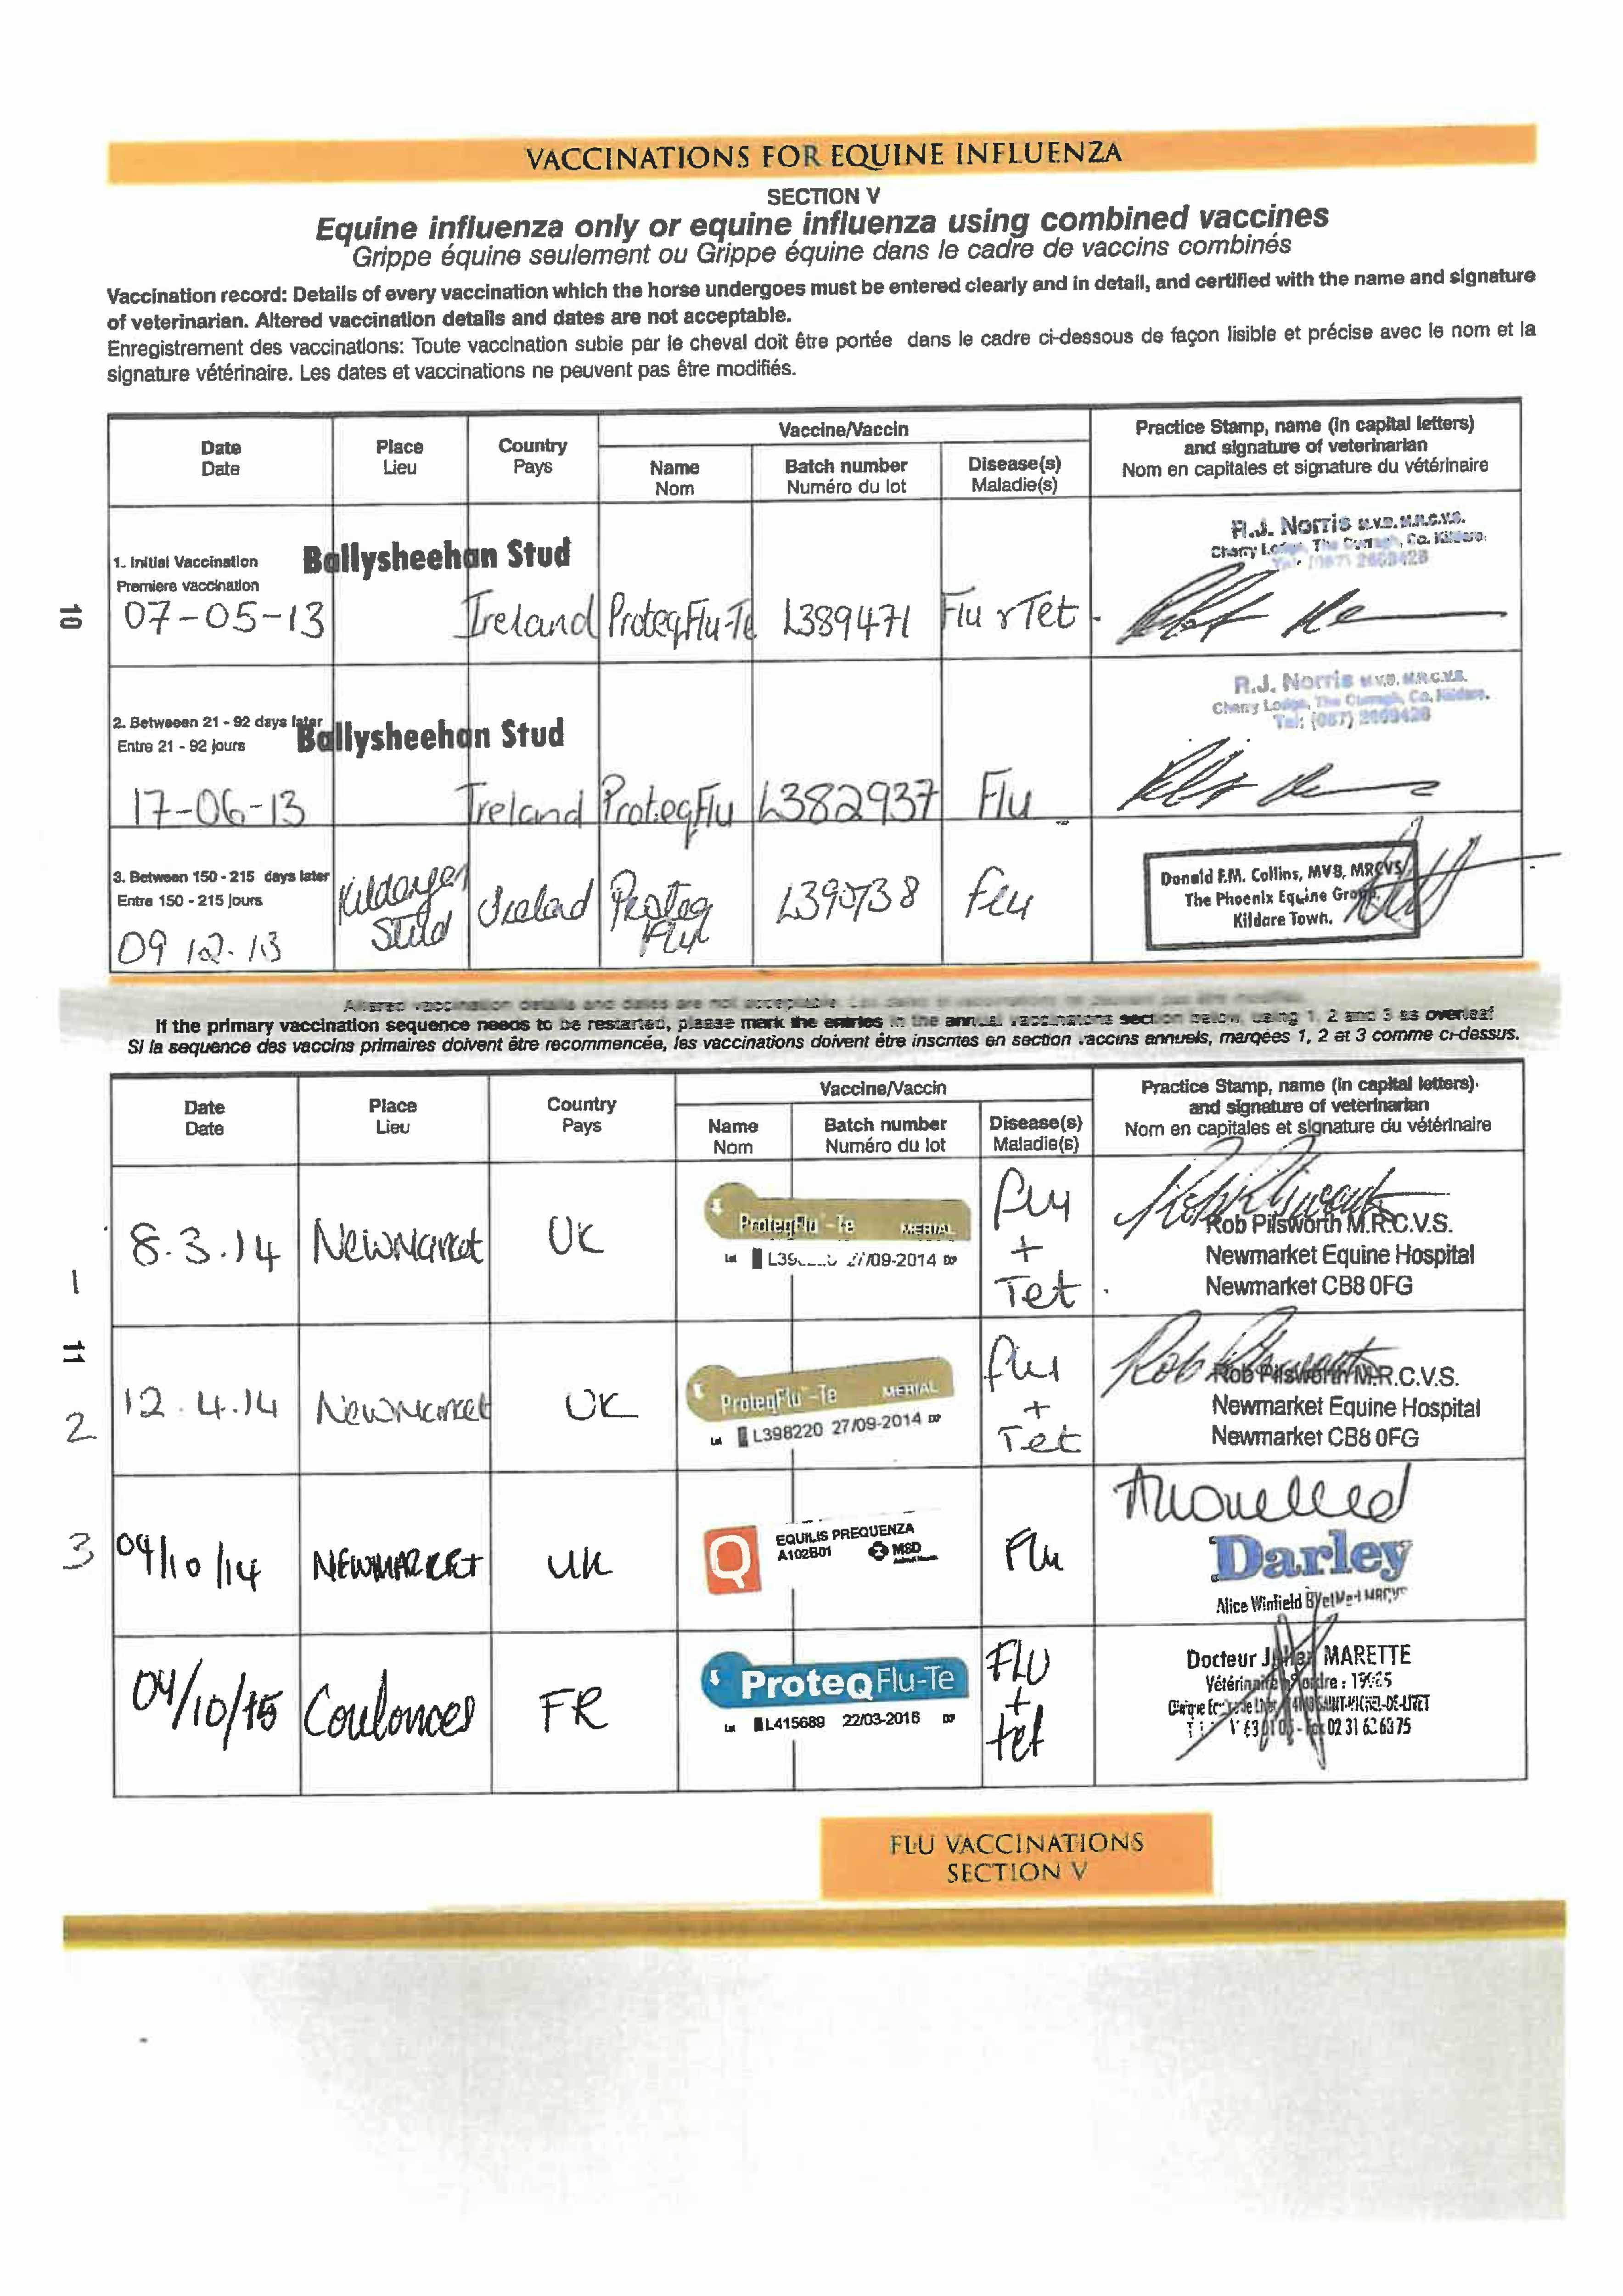 VACCINATIONS FOR EQUINE INFLUENZA
SECTION V
Equine influenza only or equine influenza using combined vaccines
Grippe équine seulement ou Grippe équine dans le cadre de vaccins combinés
Vaccination record: Details of every vaccination which the horse undergoes must be entered clearly and in detail, and certified with the name and signature
of veterinarian. Altered vaccination details and dates are not acceptable.
Enregistrement des vaccinations: Toute vaccination subie par le cheval doit être portée dans le cadre ci-dessous de façon lisible et précise avec le nom et la
signature vétérinaire. Les dates et vaccinations ne peuvent pas être modifiés.
Date
Date
Place
Lieu
Country
Pays
Vaccine/Vaccin
Name
Nom
Batch number
Numéro du lot
Disease(s)
Maladie(s)
Practice Stamp, name (in capital letters)
and signature of veterinarian
Nom en capitales et signature du vétérinaire
10
1. Initial Vaccination
Premiere vaccination
07-05-13
Ballysheehan Stud
Ireland
ProteqFlu-Te
L389471
Flu & Tet
R.J. Norris M.V.B. M.R.C.V.S.
Cherry Lodge, The Curragh, Co. Kildare.
Tel: (087) 2609428
2. Betweeen 21 - 92 days later
Entre 21 - 92 jours
17-06-13
Ballysheehan Stud
Ireland
ProteqFlu
L382937
Flu
R.J. Norris M.V.B. M.R.C.V.S.
Cherry Lodge, The Curragh, Co. Kildare.
Tel: (087) 2609428
3. Between 150 - 215 days later
Entre 150 - 215 jours
09 12. 13
Stud
Ireland
Proteq
Flu
Flu
Donald F.M. Collins, MVB, MRCVS
The Phoenix Equine Group,
Kildare Town.
Altered vaccination details and dates are not acceptable.
If the primary vaccination sequence needs to be restarted, please mark the entries in the annual vaccinations section below, using 1, 2 and 3 as overleaf
Si la sequence des vaccins primaires doivent être recommencée, les vaccinations doivent être inscrites en section vaccins annuels, marqées 1, 2 et 3 comme ci-dessus.
Date
Date
Place
Lieu
Country
Pays
Vaccine/Vaccin
Name
Nom
Batch number
Numéro du lot
Disease(s)
Maladie(s)
Practice Stamp, name (in capital letters)
and signature of veterinarian
Nom en capitales et signature du vétérinaire
1
8.3.14
Newmarket
UK
ProteqFlu-Te MERIAL
Lot 27/09-2014 EXP
Flu
+
Tet
Rob Pilsworth M.R.C.V.S.
Newmarket Equine Hospital
Newmarket CB8 0FG
11
2
12.4.14
Newmarket
UK
ProteqFlu-Te MERIAL
Lot L398220 27/09-2014 EXP
flu
+
Tet
Rob Pilsworth M.R.C.V.S.
Newmarket Equine Hospital
Newmarket CB8 0FG
3
04/10/14
NEWMARKET
UK
EQUILIS PREQUENZA
A102B01 MSD
Animal Health
Flu
Darley
Alice Winfield BVetMed MRCVS
04/10/15
Coulonces
FR
ProteqFlu-Te
Lot L415689 22/03-2016 EXP
FLU
+
tet
Docteur MARETTE
SAINT-MICHEL-DE-LIVET
FLU VACCINATIONS
SECTION V